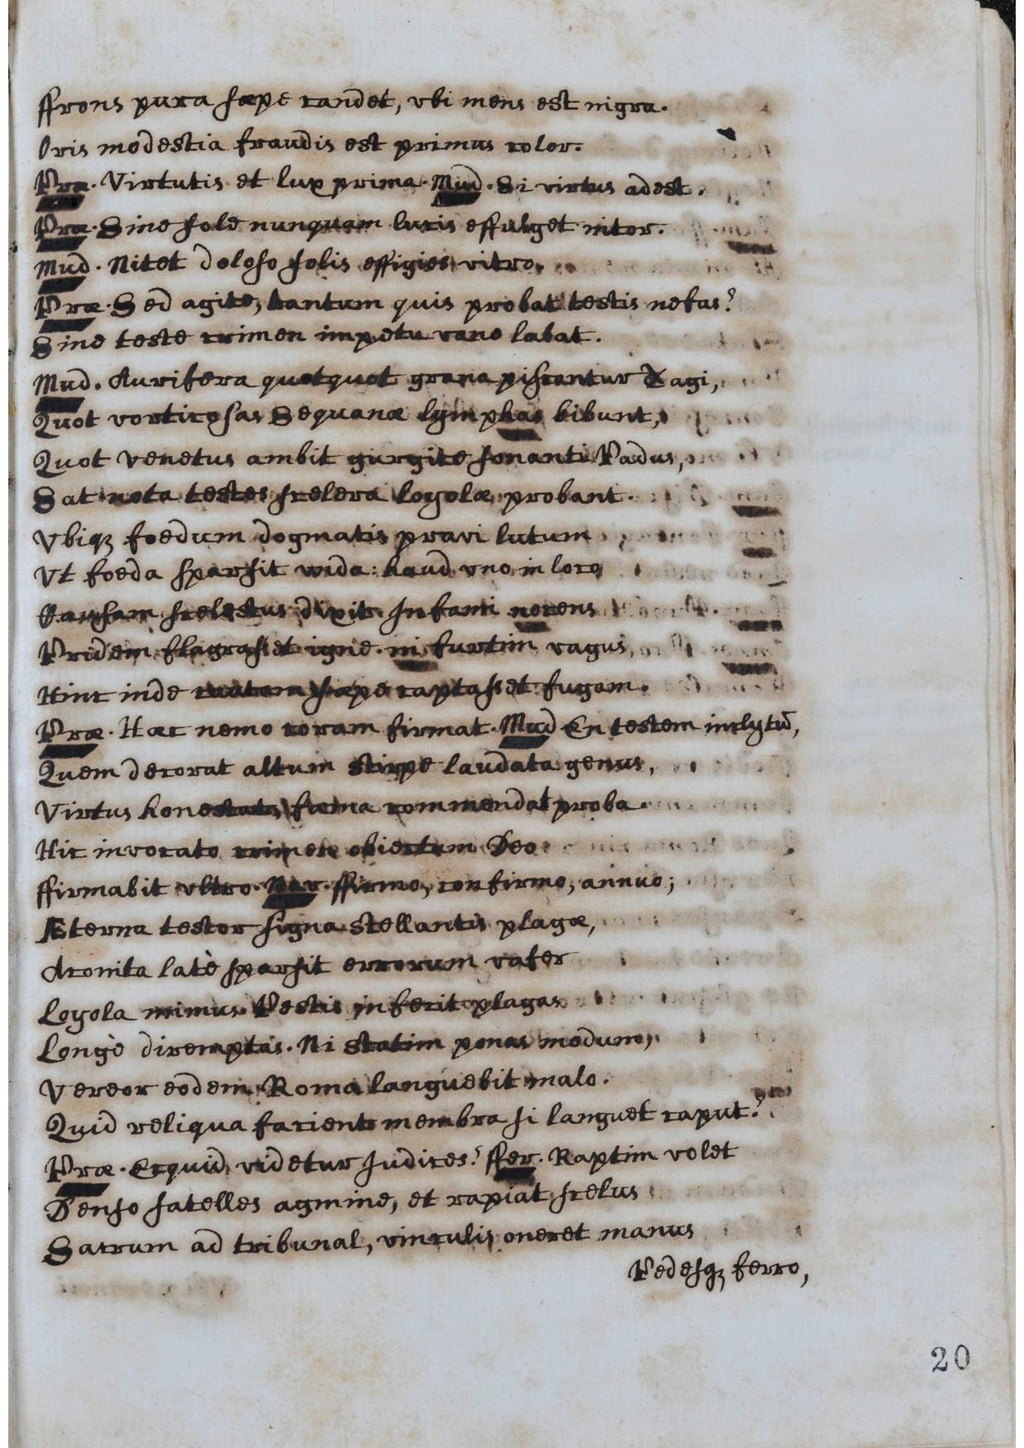 ffrons pura sæpe candet, vbi mens est nigra.
Oris modestia fraudis est primus color.
Præ. Virtutis et lux prima. Mud. Si virtus adest.
Præ. Sine sole nunquam lucis effulget nitor.
Mud. Nitet doloso solis effigies vitro.
Præ. Sed agite, tantum quis probat testis nefas?
Sine teste crimen impetu vano labat.
Mud. Aurifera quotquot grana piscantur Tagi,
Quot vorticosas Sequanæ lymphas bibunt,
Quot Venetus ambit gurgite sonanti Padus,
Sat nota testes scelera Loyolæ probant.
Vbiqꝫ foedum dogmatis pravi lutum
Vt foeda sparsit haud vno in loco
scelestus dixit. Infami nocens
Pridem flagrasset igne. ni furtim vagus,
Hinc inde sæpe captasset fugam.
Præ. Hæc nemo coram firmat. Mud En testem inclytũ,
Quem decorat altum stirpe laudata genus,
Virtus honestat, fama commendat proba.
Hic invocato crimen obiectum Deo
ffirmabit vltro. Nav. ffirmo, confirmo, annuo;
Æterna testor signa stellantis plagæ,
Aconita latè sparsit errorum vafer
Loyola mimus. Pestis inferit plagas
Longè diremptas. Ni statim ponas modum,
Vereor eodem Roma languebit malo.
Quid reliqua facient membra si languet caput?
Præ. Ecquid videtur Iudices? ffer. Raptim volet
Denso satelles agmine, et rapiat scelus
Sacrum ad tribunal, vinculis oneret manus
Pedesqꝫ ferro,
20